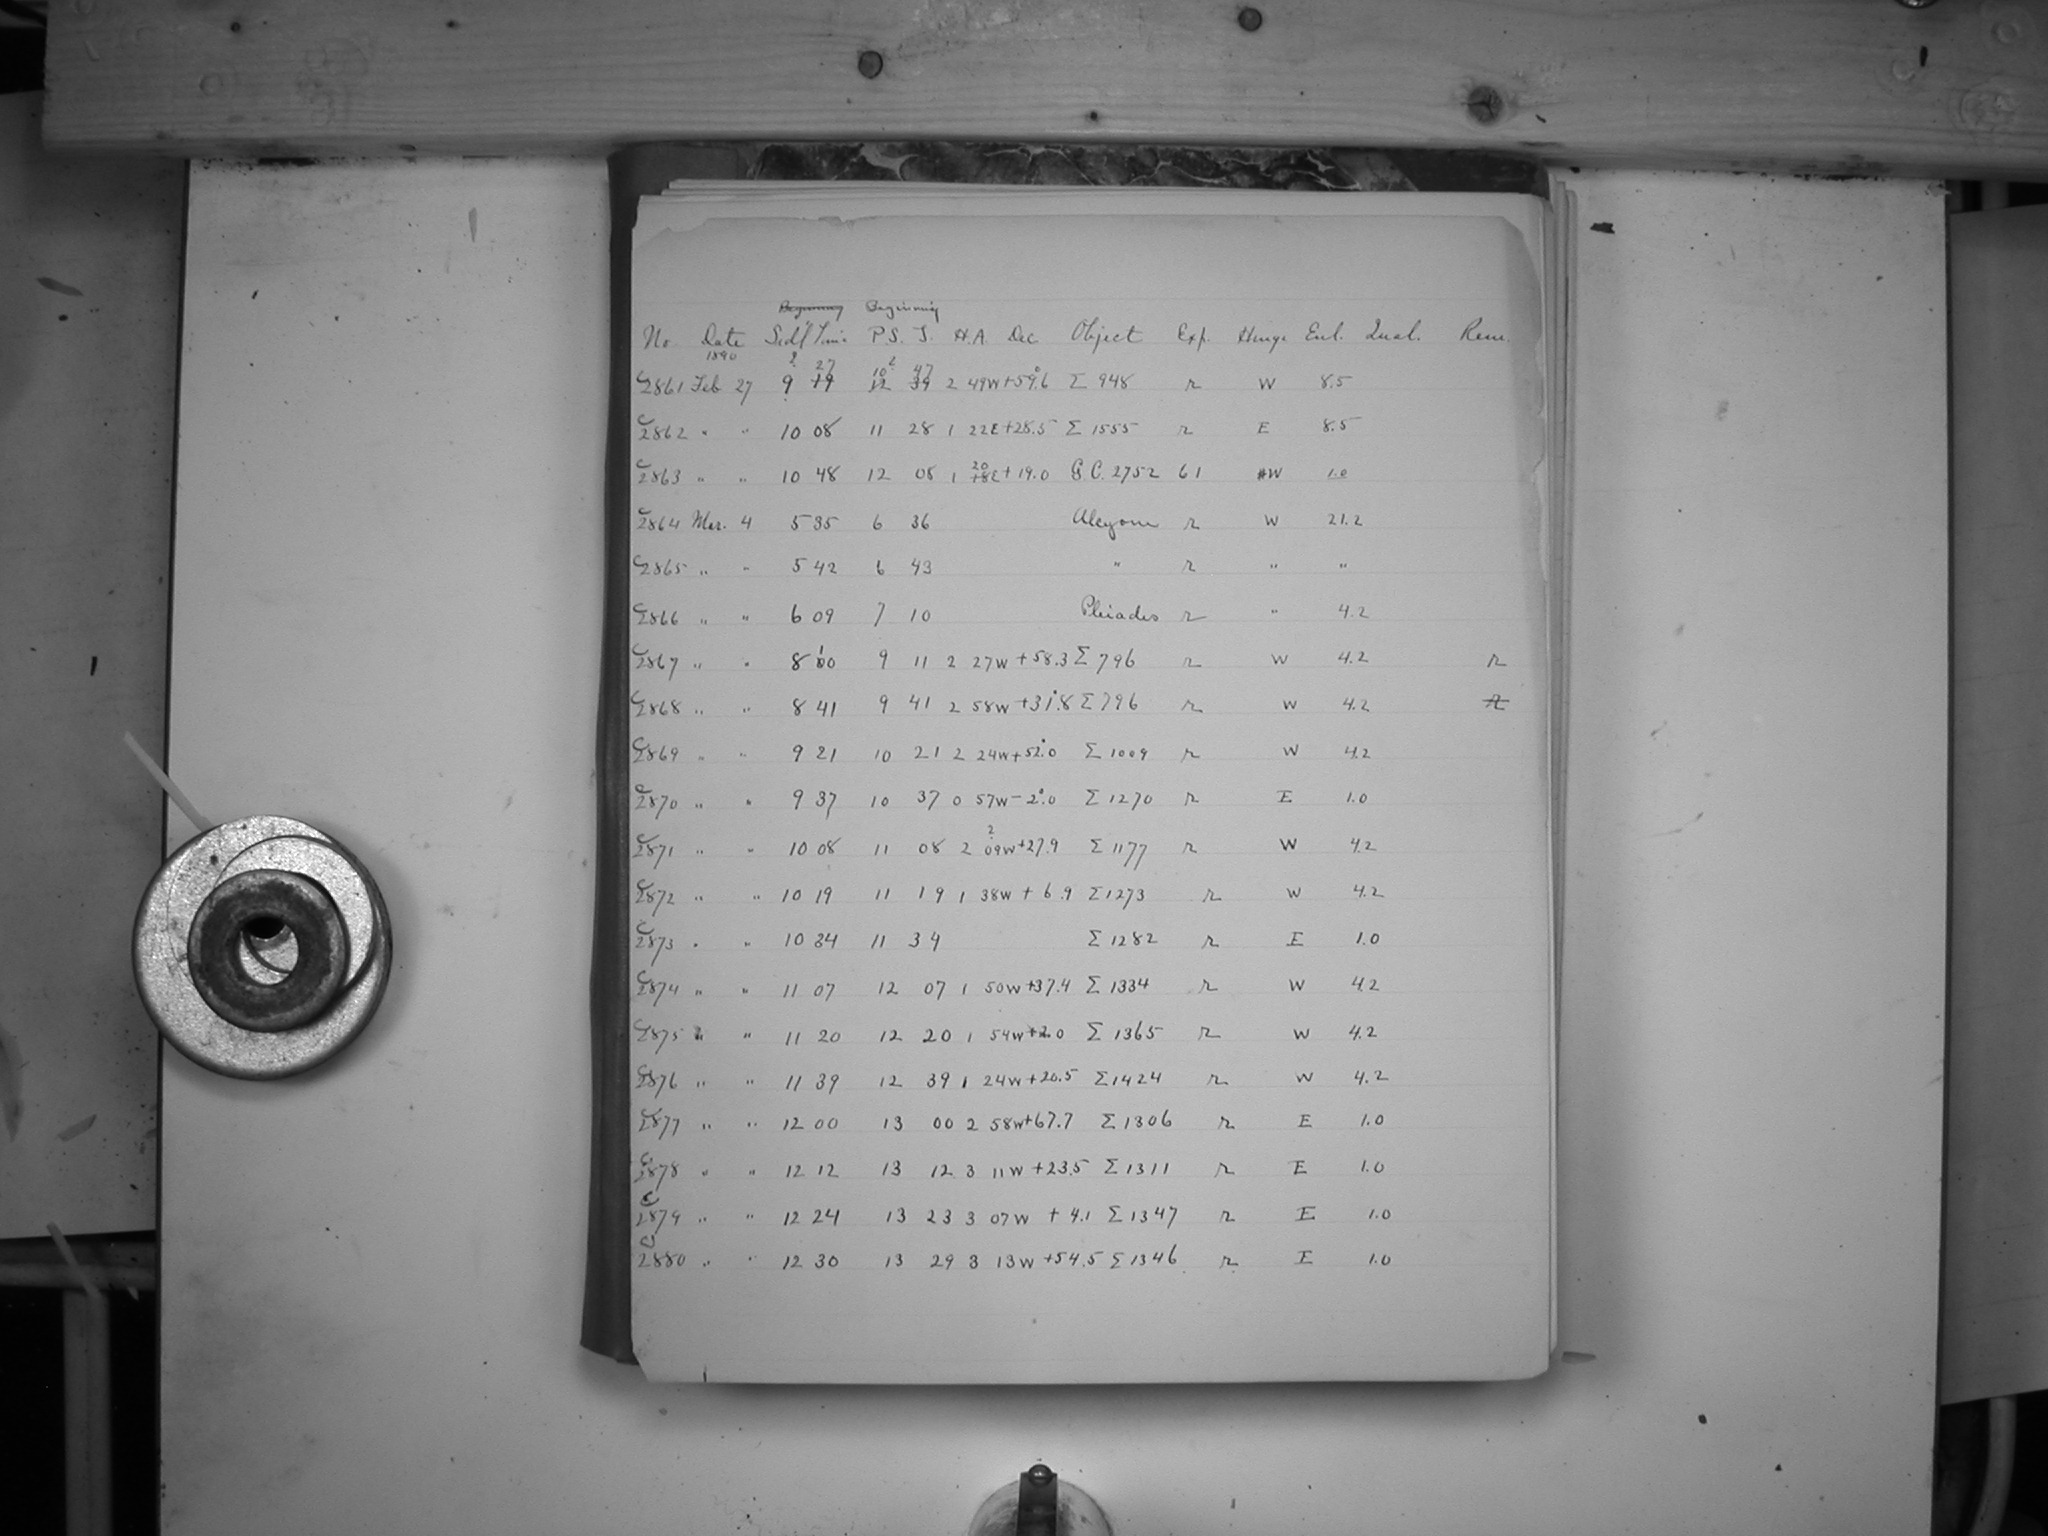 Beginning Beginning
No Date Sid'l Time P.S. T. H.A. Dec Object Exp. Hinge Enl. Qual. Rem.
1890 ? 27 10? 47
C2861 Feb 27 9 19 12 39 2 49W +59.6 Σ 948 r W 8.5
C2862 " " 10 08 11 28 1 22E +28.5 Σ 1555 r E 8.5
20
C2863 " " 10 48 12 08 1 18E +19.0 G.C. 2752 61 W 1.0
C2864 Mar. 4 5 35 6 36 Alcyone r W 21.2
C2865 " " 5 42 6 43 " r " "
C2866 " " 6 09 7 10 Pleiades r " 4.2
C2867 " " 8 10 9 11 2 27W +58.3 Σ 796 r W 4.2 r
C2868 " " 8 41 9 41 2 58W +31.8 Σ 796 r W 4.2 r
C2869 " " 9 21 10 21 2 24W +52.0 Σ 1009 r W 4.2
C2870 " " 9 37 10 37 0 57W -2.0 Σ 1270 r E 1.0
?
C2871 " " 10 08 11 08 2 09W +27.9 Σ 1177 r W 4.2
C2872 " " 10 19 11 19 1 38W + 6.9 Σ 1273 r W 4.2
C2873 " " 10 34 11 34 Σ 1282 r E 1.0
C2874 " " 11 07 12 07 1 50W +37.4 Σ 1334 r W 4.2
C2875 " " 11 20 12 20 1 54W +2.0 Σ 1365 r W 4.2
C2876 " " 11 39 12 39 1 24W +20.5 Σ 1424 r W 4.2
C2877 " " 12 00 13 00 2 58W +67.7 Σ 1306 r E 1.0
C2878 " " 12 12 13 12 3 11W +23.5 Σ 1311 r E 1.0
C2879 " " 12 24 13 23 3 07W + 4.1 Σ 1347 r E 1.0
C2880 " " 12 30 13 29 3 13W +54.5 Σ 1346 r E 1.0